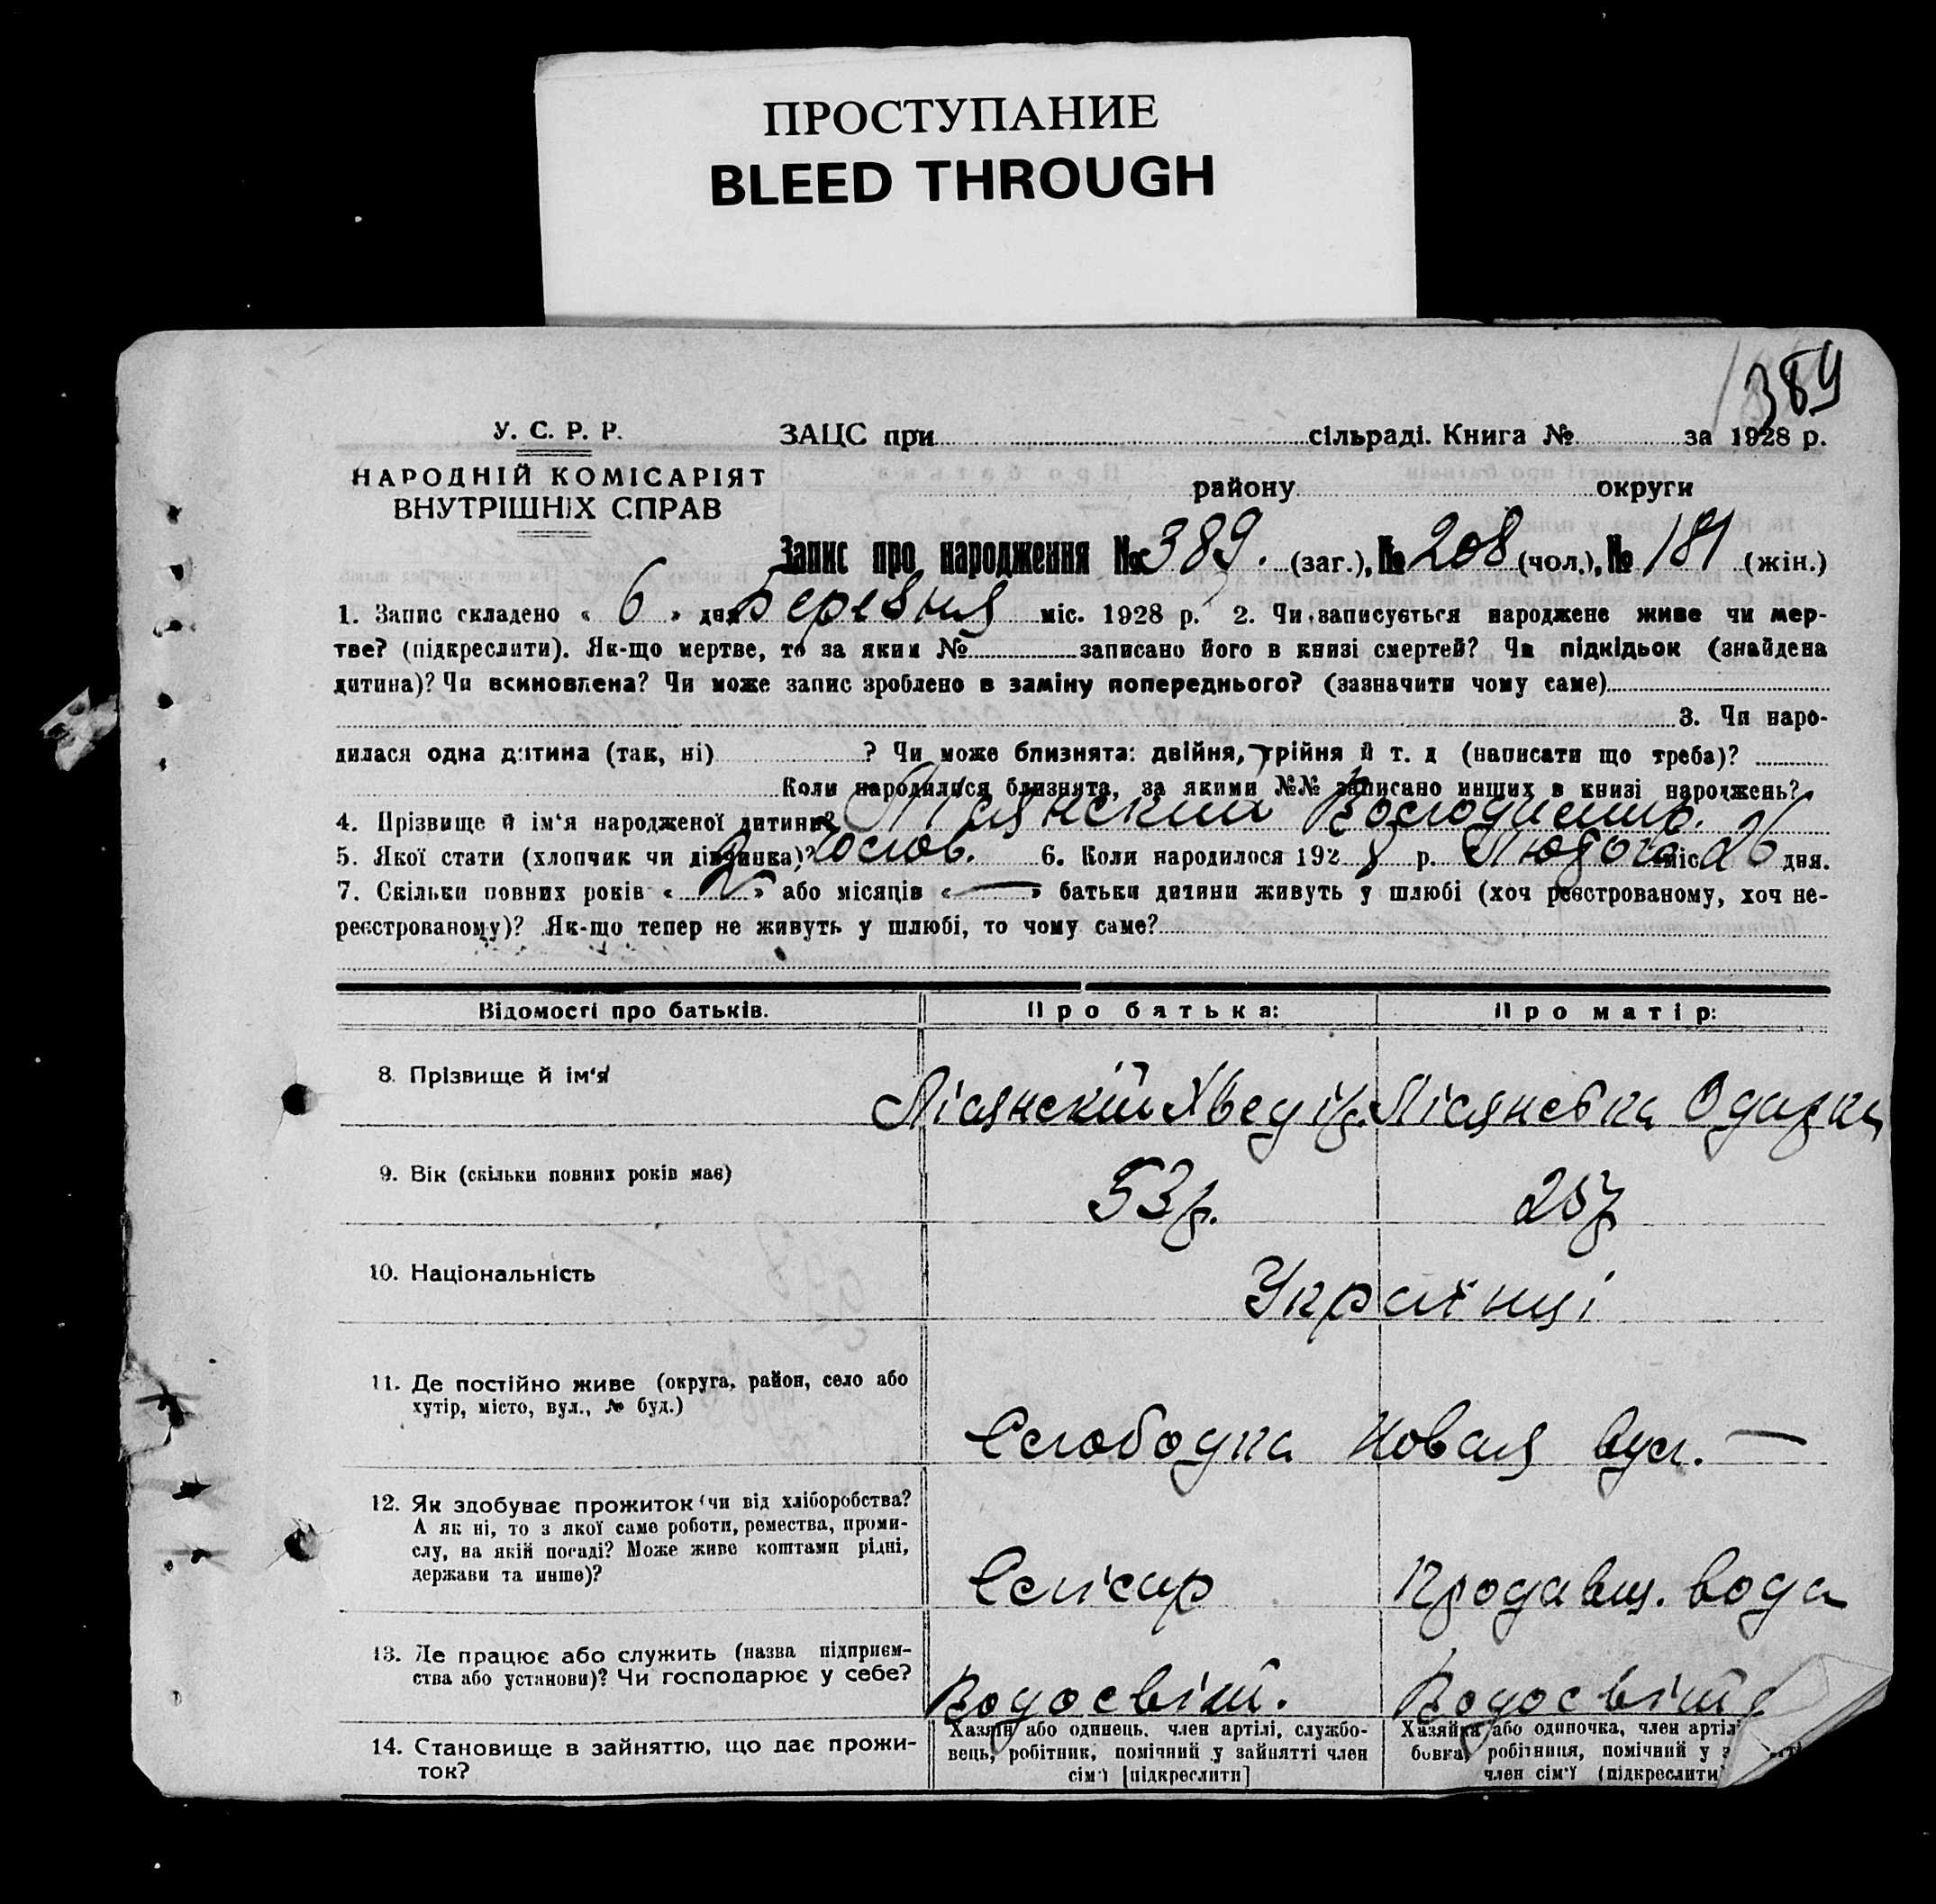 ПРОСТУПАНИЕ
BLEED THROUGH
389
У. С. Р. Р.
НАРОДНІЙ КОМІСАРІЯТ
ВНУТРІШНІХ СПРАВ
ЗАЦС при сільраді. Книга № за 1928 р.
району округи
Запис про народження № 389. (заг.), № 208 (чол.), № 181 (жін.)
1. Запис складено « 6 » дня Березня міс. 1928 р. 2. Чи записується народжене живе чи мер-
тве? (підкреслити). Як-що мертве, то за яким № записано його в книзі смертей? Чи підкідьок (знайдена
дитина)? Чи всиновлена? Чи може запис зроблено в заміну попереднього? (зазначити чому саме)
3. Чи наро-
дилася одна дитина (так, ні) ? Чи може близнята: двійня, трійня й т. д (написати що треба)?
Коли народилися близнята, за якими №№ записано инших в книзі народжень?
4. Прізвище й ім'я народженої дитини? Лісянский Володимир.
5. Якої стати (хлопчик чи дівчинка)? Чолов. 6. Коли народилося 1928 р. Лютого міс. 26 дня.
7. Скільки повних років « 2 » або місяців « — » батьки дитини живуть у шлюбі (хоч реєстрованому, хоч не-
реєстрованому)? Як-що тепер не живуть у шлюбі, то чому саме?
Відомості про батьків. Про батька: Про матір:
8. Прізвище й ім'я Лісянскій Хведір. Лісянська Одарка
9. Вік (скільки повних років має) 53 р. 25 р
10. Національність Українці
11. Де постійно живе (округа, район, село або
хутір, місто, вул., № буд.) Слободка Новая вул. —
12. Як здобуває прожиток (чи від хліборобства?
А як ні, то з якої саме роботи, ремества, проми-
слу, на якій посаді? Може живе коштами рідні,
держави та инше)? Слісар Продавщ. вода
13. Де працює або служить (назва підприєм-
ства або установи)? Чи господарює у себе? Водосвіт. Водосвіт
14. Становище в зайняттю, що дає прожи-
ток?
Хазяїн або одинець, член артілі, службо-
вець, робітник, помічний у зайнятті член
сім'ї [підкреслити]
Хазяйка або одиночка, член артіл
бовка, робітниця, помічний у з
член сім'ї (підкреслити)